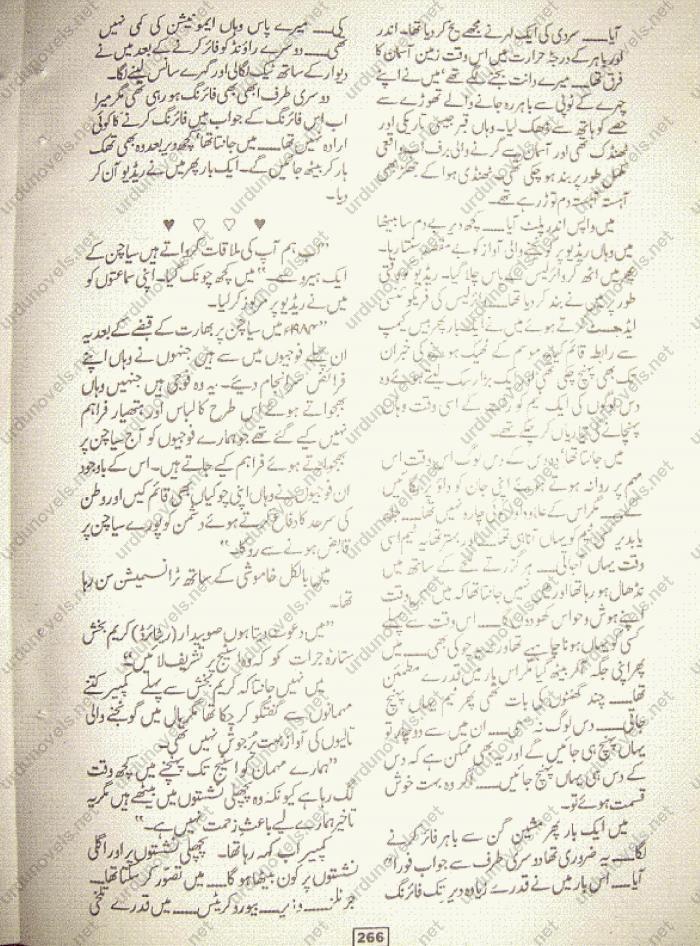 آیا۔۔۔۔ سردی کی ایک لہر نے مجھے یخ کر دیا تھا۔ اندر
اور باہر کے درجۂ حرارت میں اس وقت زمین آسمان کا
فرق تھا۔۔۔۔ میرے دانت بجنے لگے تھے‘ میں نے اپنے
چہرے کے ٹوپی سے باہر رہ جانے والے تھوڑے سے
حصے کو ہاتھ سے ڈھک لیا۔ وہاں قبر جیسی تاریکی اور
ٹھنڈک تھی اور آسمان سے گرنے والی برف اب واقعی
مکمل طور پر بند ہو چکی تھی۔ ٹھنڈی ہوا کے جھکڑ بھی
آہستہ آہستہ دم توڑ رہے تھے۔
میں واپس اندر پلٹ آیا۔۔۔۔ کچھ دیر بے دم سا بیٹھا
میں وہاں ریڈیو پر گونجنے والی آواز کو بے مقصد سنتا رہا۔
پھر میں اٹھ کر وائرلیس کے پاس چلا گیا۔ ریڈیو کو وقتی
طور پر میں نے بند کر دیا تھا۔ وائرلیس کی فریکوئنسی
ایڈجسٹ کرتے ہوئے میں نے ایک بار پھر بیس کیمپ
سے رابطہ قائم کیا۔ موسم کے ٹھیک ہونے کی خبر ان
تک بھی پہنچ چکی تھی اور ایک بڑا رسک لیتے ہوئے وہ
دس لوگوں کی ایک ٹیم کو رات کے اسی وقت وہاں
پہنچانے کی تیاریاں کر چکے تھے۔
میں جانتا تھا‘ وہ دس کے دس لوگ اس وقت اس
مہم پر روانہ ہوتے ہوئے اپنی جان کو داؤ پر لگائیں
گے۔۔۔۔ مگر اس کے علاوہ اور کوئی چارہ نہیں تھا۔ جلد
یا بدیر کسی ٹیم کو یہاں آنا ہی تھا۔۔۔۔ اور بہتر تھا یہ ٹیم اسی
وقت یہاں آ جاتی۔۔۔۔ ہر گزرتے لمحے کے ساتھ میں
نڈھال ہو رہا تھا اور میں نہیں جانتا تھا کہ میں کس وقت
اپنے ہوش و حواس کھو دوں گا۔۔۔۔ اس وقت سے پہلے
کسی کو یہاں ہونا چاہیے تھا وہ جو کوئی بھی۔۔۔۔ میں
پھر اپنی جگہ آ کر بیٹھ گیا مگر اس بار میں قدرے مطمئن
تھا۔۔۔۔ چند گھنٹوں کی بات تھی پھر ٹیم یہاں پہنچ
جاتی۔۔۔۔ دس لوگ نہ سہی۔۔۔۔ ان میں سے دو چار تو
یہاں پہنچ ہی جائیں گے اور یہ بھی ممکن ہے کہ دس
کے دس ہی یہاں پہنچ جائیں۔۔۔۔ اگر وہ بہت خوش
قسمت ہوئے تو۔
میں ایک بار پھر مشین گن سے باہر فائر کرنے
لگا۔۔۔۔ یہ ضروری تھا دوسری طرف سے جواب فوراً
آیا۔۔۔۔ اس بار میں نے قدرے زیادہ دیر تک فائرنگ
کی۔۔۔۔ میرے پاس وہاں ایمونیشن کی کمی نہیں
تھی۔۔۔۔ دوسرے راؤنڈ کو فائر کرنے کے بعد میں نے
دیوار کے ساتھ ٹیک لگا لی اور گہرے سانس لینے لگا۔
دوسری طرف ابھی بھی فائرنگ ہو رہی تھی مگر میرا
اب اس فائرنگ کے جواب میں فائرنگ کرنے کا کوئی
ارادہ نہیں تھا۔۔۔۔ میں جانتا تھا‘ کچھ دیر بعد وہ بھی تھک
ہار کر بیٹھ جائیں گے۔ ایک بار پھر میں نے ریڈیو آن کر
دیا۔
♥ ♡ ♡ ♥
”اب ہم آپ کی ملاقات کرواتے ہیں سیاچن کے
ایک ہیرو سے۔“ میں کچھ چونک گیا۔ اپنی سماعتوں کو
میں نے ریڈیو پر مرکوز کر لیا۔
”۱۹۸۴ء میں سیاچن پر بھارت کے قبضے کے بعد یہ
ان پہلے فوجیوں میں سے ہیں جنہوں نے وہاں اپنے
فرائض سرانجام دیے۔ یہ وہ فوجی ہیں جنہیں وہاں
بھجواتے ہوئے اس طرح کا لباس اور ہتھیار فراہم
نہیں کیے گئے تھے جو ہمارے فوجیوں کو آج سیاچن پر
بھجواتے ہوئے فراہم کیے جاتے ہیں۔ اس کے باوجود
ان فوجیوں نے وہاں اپنی چوکیاں بھی قائم کیں اور وطن
کی سرحد کا دفاع کرتے ہوئے دشمن کو پورے سیاچن پر
قابض ہونے سے روکا۔“
میں بالکل خاموشی کے ساتھ ٹرانسمیشن سن رہا
تھا۔
”میں دعوت دیتا ہوں صوبیدار (ریٹائرڈ) کریم بخش
ستارہ جرات کو کہ وہ اسٹیج پر تشریف لائیں۔“
میں نہیں جانتا کہ کریم بخش سے پہلے کمپیئر کتنے
مہمانوں سے گفتگو کر چکا تھا مگر ہال میں گونجنے والی
تالیوں کی آواز بہت پُرجوش نہیں تھی۔
”ہمارے مہمان کو اسٹیج تک پہنچنے میں کچھ وقت
لگ رہا ہے کیونکہ وہ پچھلی نشستوں میں بیٹھے ہیں مگر یہ
تاخیر ہمارے لیے باعثِ زحمت نہیں ہے۔“
کمپیئر اب کہہ رہا تھا۔ پچھلی نشستوں پر اور اگلی
نشستوں پر کون بیٹھا ہوگا۔۔۔۔ میں تصور کر سکتا تھا۔۔۔۔
جرنلز۔۔۔۔ وزیر۔۔۔۔ بیوروکریٹس۔۔۔۔ میں قدرے تلخی
266
urdunovels.net